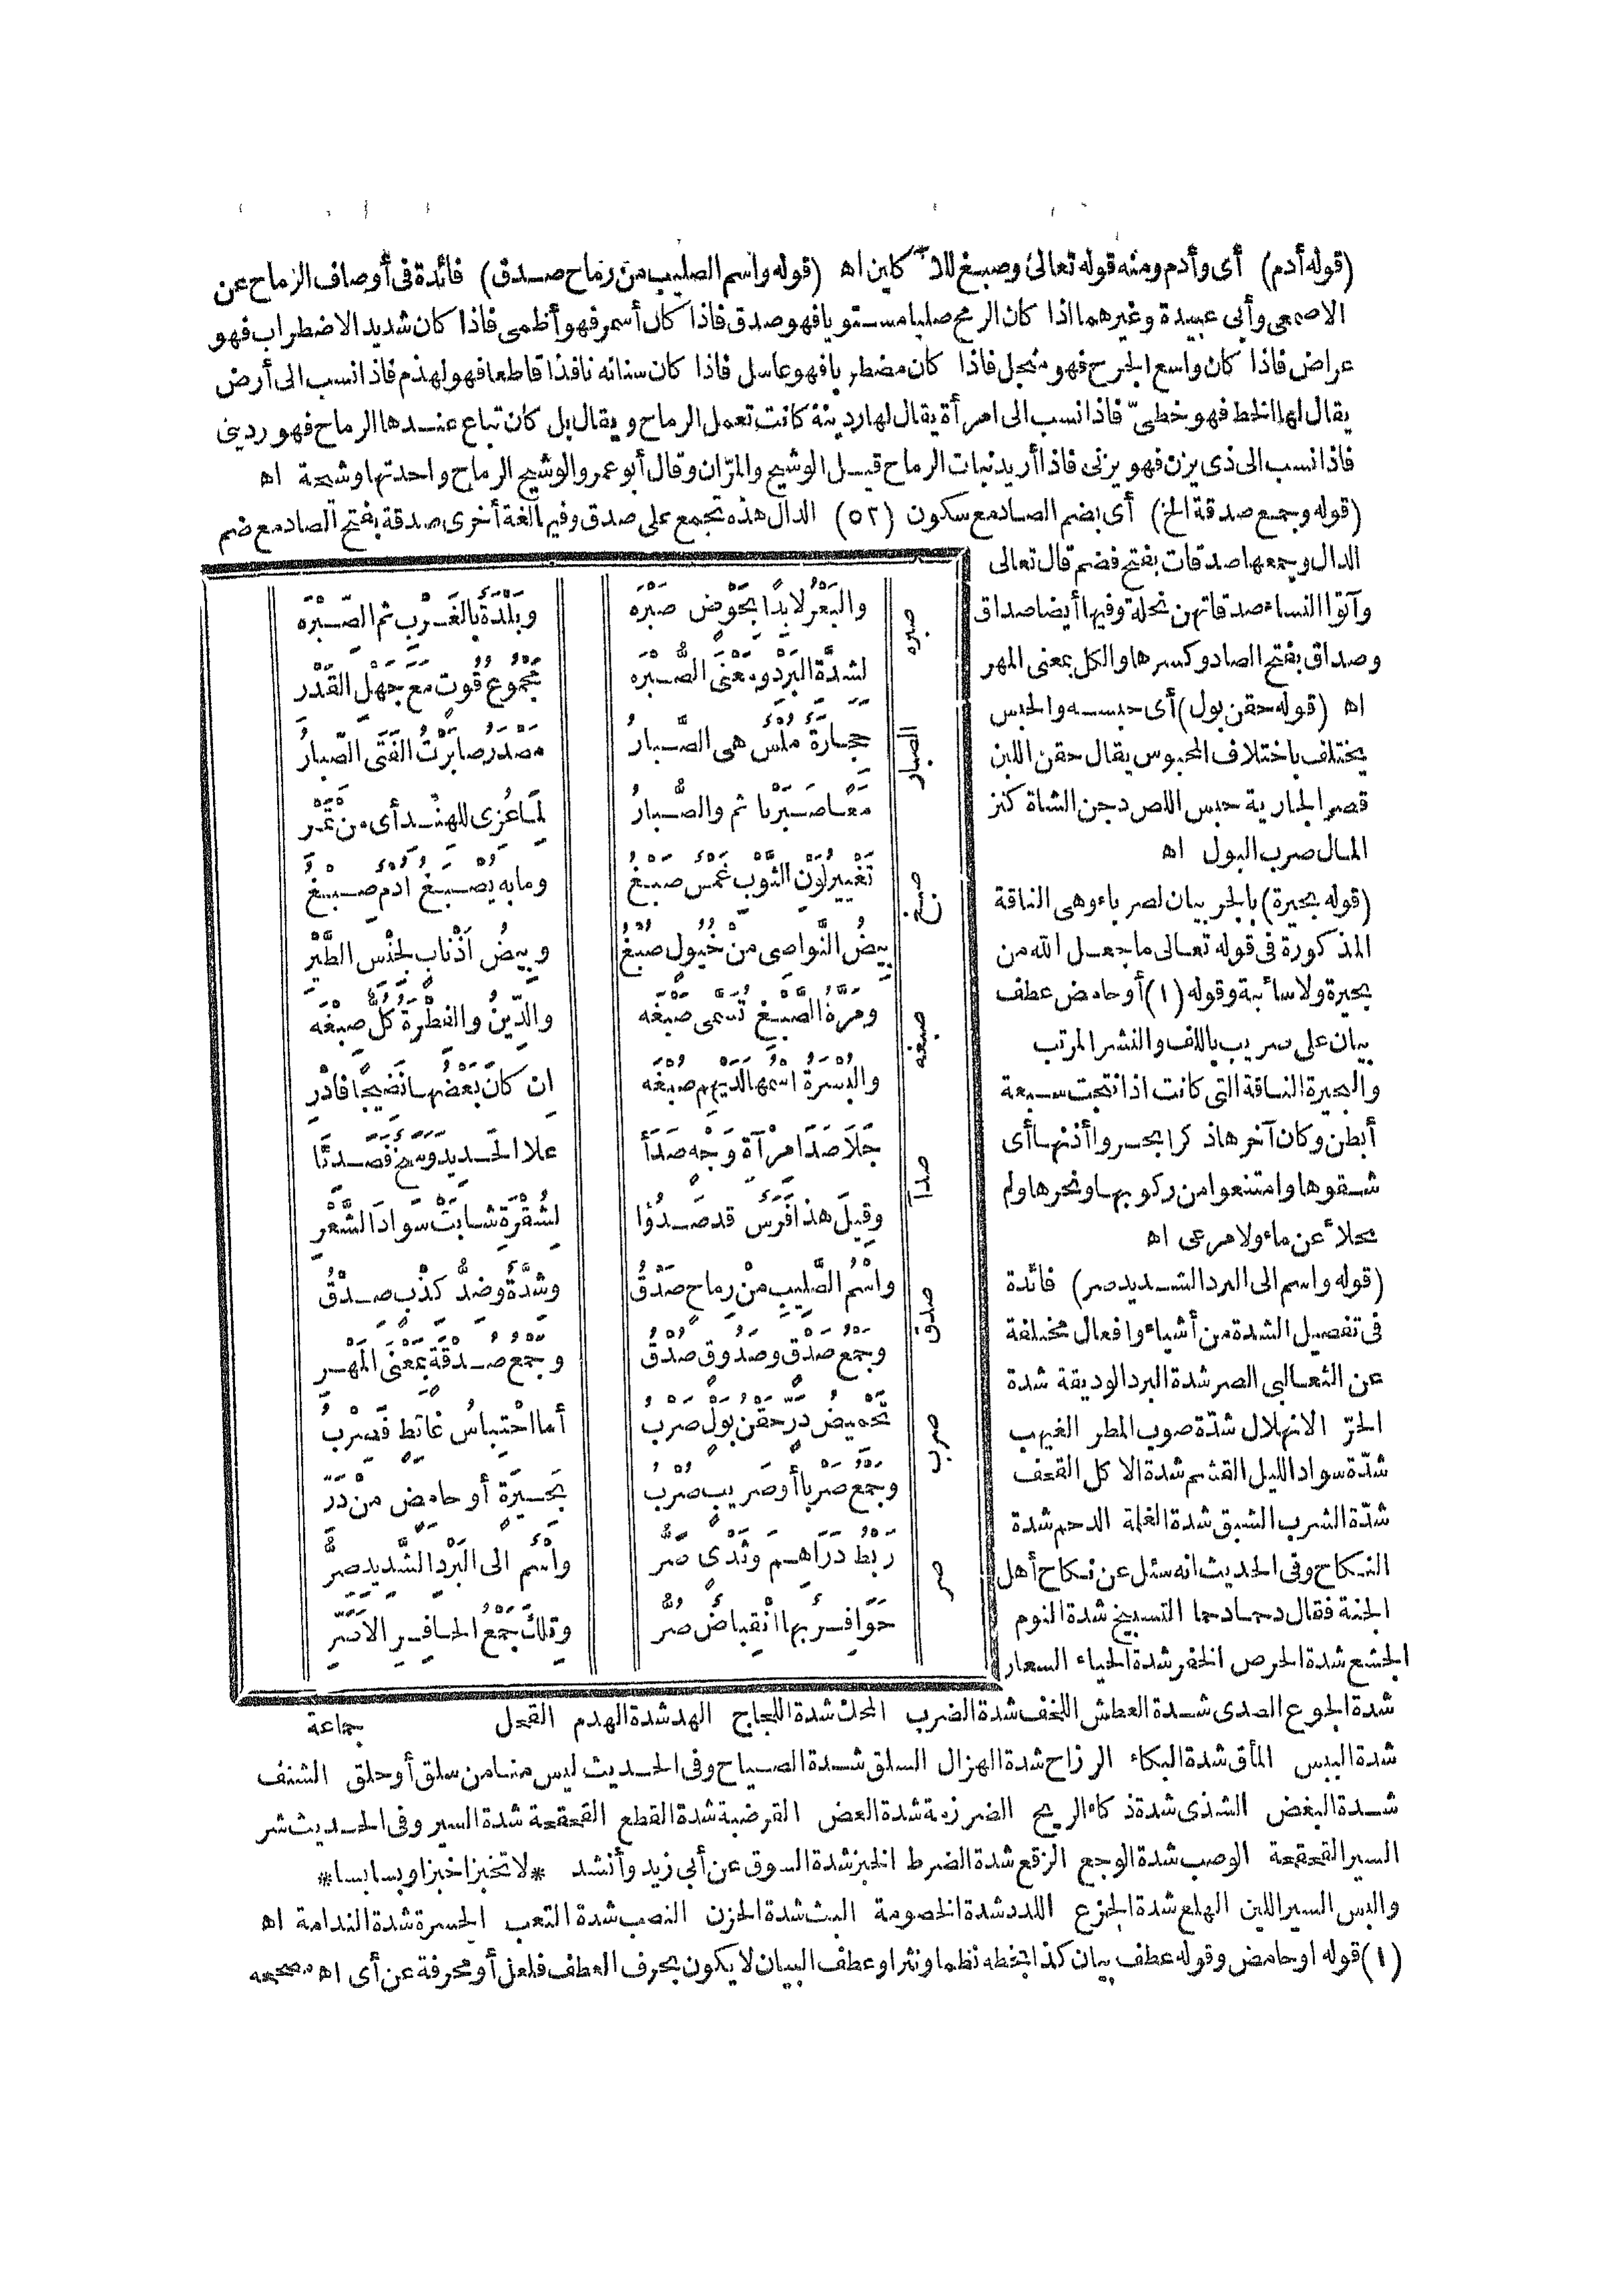 (قوله أدم) أى وأدم ومنه قوله تعالى وصبغ للآكلين اه (قوله واسم الصليب من رماح صدق) فائدة فى أوصاف الرماح عن
الاصمعى وأبى عبيدة وغيرهما اذا كان الرمح صلبا مستويا فهو صدق فاذا كان أسمر فهو أظمى فاذا كان شديد الاضطراب فهو
عراض فاذا كان واسع الجرح فهو منجل فاذا كان مضطربا فهو عاسل فاذا كان سنانه نافذا قاطعا فهو لهذم فاذا نسب الى أرض
يقال لها الخط فهو خطىّ فاذا نسب الى امرأة يقال لها ردينة كانت تعمل الرماح ويقال بل كان تباع عندها الرماح فهو ردينى
فاذا نسب الى ذى يزن فهو يزنى فاذا أريد نبات الرماح قيل الوشيج والمرّان وقال أبو عمرو الوشيج الرماح واحدتها وشيجة اه
(قوله وجمع صدقة الخ) أى بضم الصاد مع سكون (٥٢) الدال هذه تجمع على صدق وفيها لغة أخرى صدقة بفتح الصاد مع ضم
الدال وجمعها صدقات بفتح فضم قال تعالى
وآتوا النساء صدقاتهن نحلة وفيها أيضا صداق
وصداق بفتح الصاد وكسرها والكل بمعنى المهر
اه (قوله حقن بول) أى حبسه والحبس
يختلف باختلاف المحبوس يقال حقن اللبن
قصر الجارية حبس اللص دجن الشاة كنز
المال صرب البول اه
(قوله بحيرة) بالجر بيان لصرباء وهى الناقة
المذكورة فى قوله تعالى ما جعل الله من
بحيرة ولا سائبة وقوله (١) أو حامض عطف
بيان على صريب باللف والنشر المرتب
والبحيرة الناقة التى كانت اذا نتجت سبعة
أبطن وكان آخرها ذكرا بحروا أذنها أى
شقوها وامتنعوا من ركوبها ونحرها ولم
تحلأ عن ماء ولا مرعى اه
(قوله واسم الى البرد الشديد صر) فائدة
فى تفصيل الشدة من أشياء وافعال مختلفة
عن الثعالبى الصر شدة البرد الوديقة شدة
الحرّ الانهلال شدّة صوب المطر الغيهب
شدّة سواد الليل القشم شدة الاكل القحف
شدّة الشرب الشبق شدة الغلمة الدحم شدة
النكاح وفى الحديث انه سئل عن نكاح أهل
الجنة فقال دحما دحما التسبيخ شدة النوم
الجشع شدة الحرص الخفر شدة الحياء السعار
صبره
والبَعْرُ لابدًا بحَوْض صَبْرَه وبَلْدَةٌ بالغَرْب ثم الصّبْرَه
لشدَّة البَرْد ومَعْنَى الصُّبْرَه مَجْمُوعُ قُوت مع جَهْل القَدْر
الصبار
حجَارَةٌ مُلْسٌ هى الصَّبارُ مَصْدَرُ صابَرْتُ الفَتَى الصّبارُ
مَعًا صَبَرْنا ثم والصُّبارُ لِمَا عُزِى للهنْد أى من تَمْر
صبغ
تَغْييرُ لَوْن الثَّوْب غَمْسٌ صَبْغُ وما به يُصْبَغُ اُدْمٌ صِبْغُ
بيضُ النَّواصى مِنْ خُيُول صُبْغُ وبيضُ أذْنابٍ لجنْس الطَّيْر
صبغه
ومَرَّةُ الصَّبْغ تُسَمَّى صَبْغَه والدِّينُ والفطْرةُ كلٌّ صِبْغَه
والبُسْرَةُ اسْمُها لَدَيْهِم صُبْغَه ان كانَ بَعْضُها نَضيجًا فادْرِ
صدأ
جَلا صَدَا مِرْآة وَجْه صَدَأَ عَلا الحَديدَ وسَخٌ فَصَدئَا
وقيلَ هذا فَرَسٌ قد صَدُؤا لِشُقْرَةٍ شابَتْ سَوادَ الشَّعْرِ
صدق
واسْمُ الصَّلِيبِ مِنْ رِماحٍ صَدْقُ وشدَّةٌ وضدُّ كذْبٍ صِدْقُ
وجَمْعُ صَدْقٍ وصَدُوقٍ صُدْقُ وجَمْعُ صُدْقَةٍ بمَعْنَى المَهْر
صرب
تَحْميضُ دَرّ حَقْنُ بَوْلٍ صَرْبُ أما احْتِباسُ غائطٍ فَصِرْبُ
وجَمْعُ صَرْبا أو صَريبٍ صُرْبُ بَحيرَةٍ أو حامضٍ من دَرّ
صر
رَبْطُ دَرَاهِمَ وثَدْىٍ صَرُّ واسْمٌ الى البَرْد الشَّديد صِرُّ
حَوافِرٌ بها انْقباضٌ صُرُّ وتلك جَمْعُ الحافِرِ الاَصَرّ
شدة الجوع الصدى شدة العطش اللخف شدة الضرب المحك شدة اللجاج الهد شدة الهدم القحل جماعة
شدة اليبس المأق شدة البكاء الرزاح شدة الهزال السلق شدة الصياح وفى الحديث ليس منا من سلق أو حلق الشنف
شدة البغض الشذى شدة ذكاء الريح الضرزمة شدة العض القرضبة شدة القطع القحقحة شدة السير وفى الحديث شر
السير القحقحة الوصب شدة الوجع الزقع شدة الضرط الخبز شدة السوق عن أبى زيد وأنشد *لا تخبزا خبزا وبسا بسا*
والبس السير اللين الهلع شدة الجزع اللدد شدة الخصومة البث شدة الحزن النصب شدة التعب الحسرة شدة الندامة اه
(١) قوله او حامض وقوله عطف بيان كذا بخطه نظما ونثرا وعطف البيان لا يكون بحرف العطف فلعل أو محرفة عن أى اه مصححه